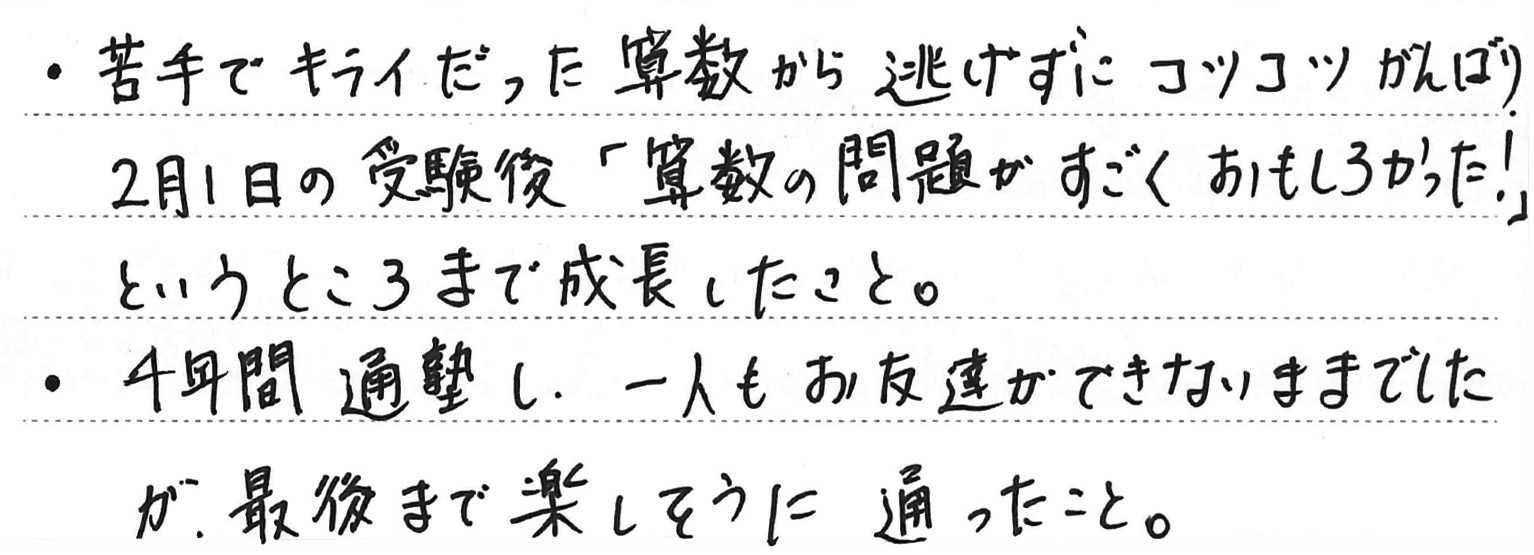 ・苦手でキライだった算数から逃げずにコツコツがんばり、
2月1日の受験後「算数の問題がすごくおもしろかった!」
というところまで成長したこと。
・4年間通塾し、一人もお友達ができないままでした
が、最後まで楽しそうに通ったこと。